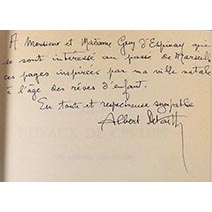 A Monsieur et Madame Guy d'Espinay qui
se sont intéressé au passé de Marseille
ces pages inspirées par ma ville natale
à l'âge des rêves d'enfant.
En toute et respectueuse sympathie
Albert Detaille